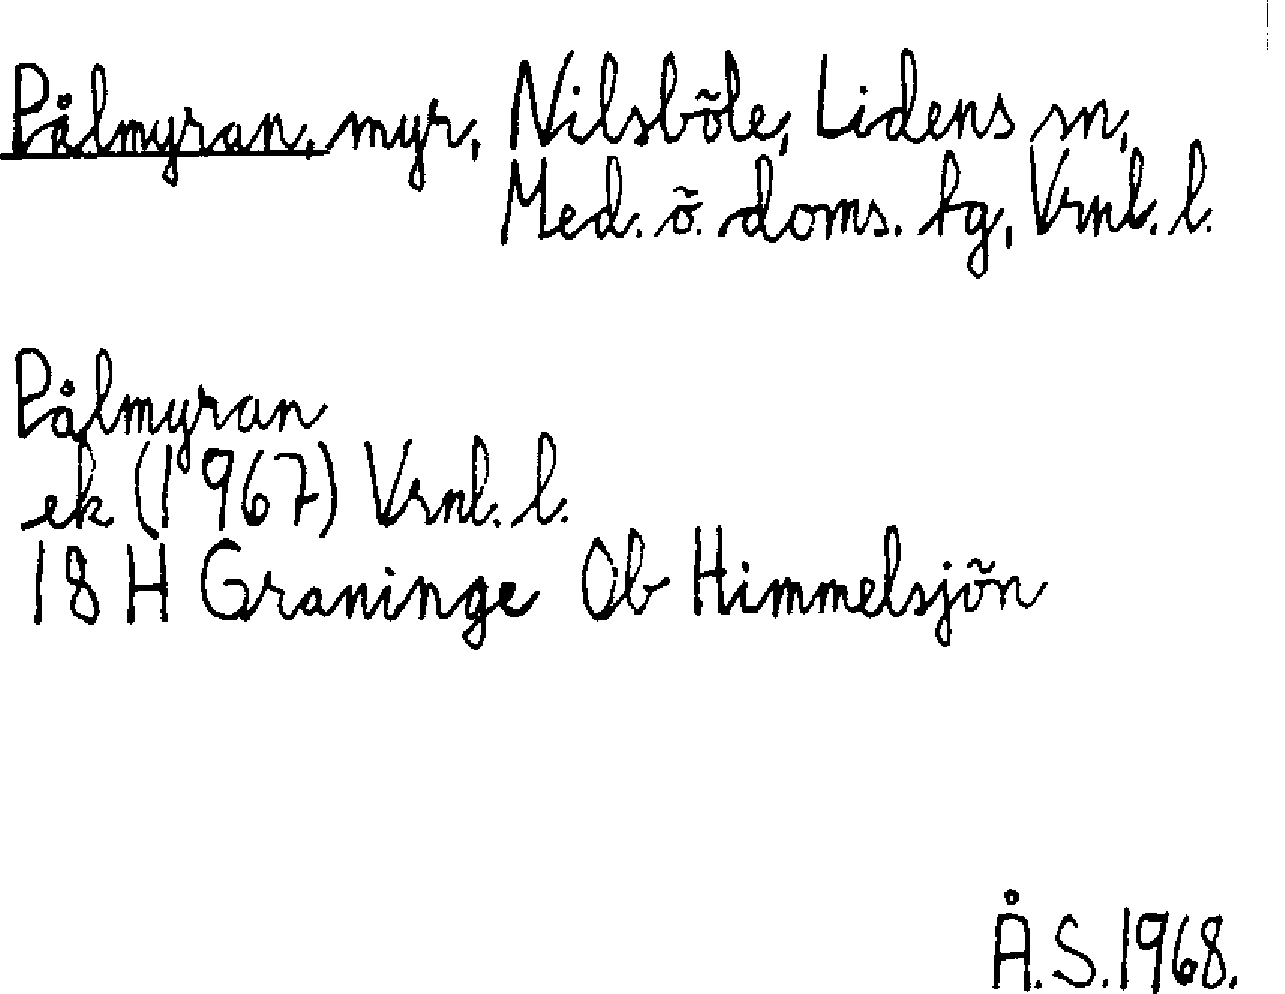 Pålmyran, myr, Nilsböle, Lidens sn,
Med. ö. doms. tg, Vrnl. l.
Pålmyran
ek (1967) Vrnl. l.
18 H Graninge Ob Himmelsjön
Å.S. 1968.